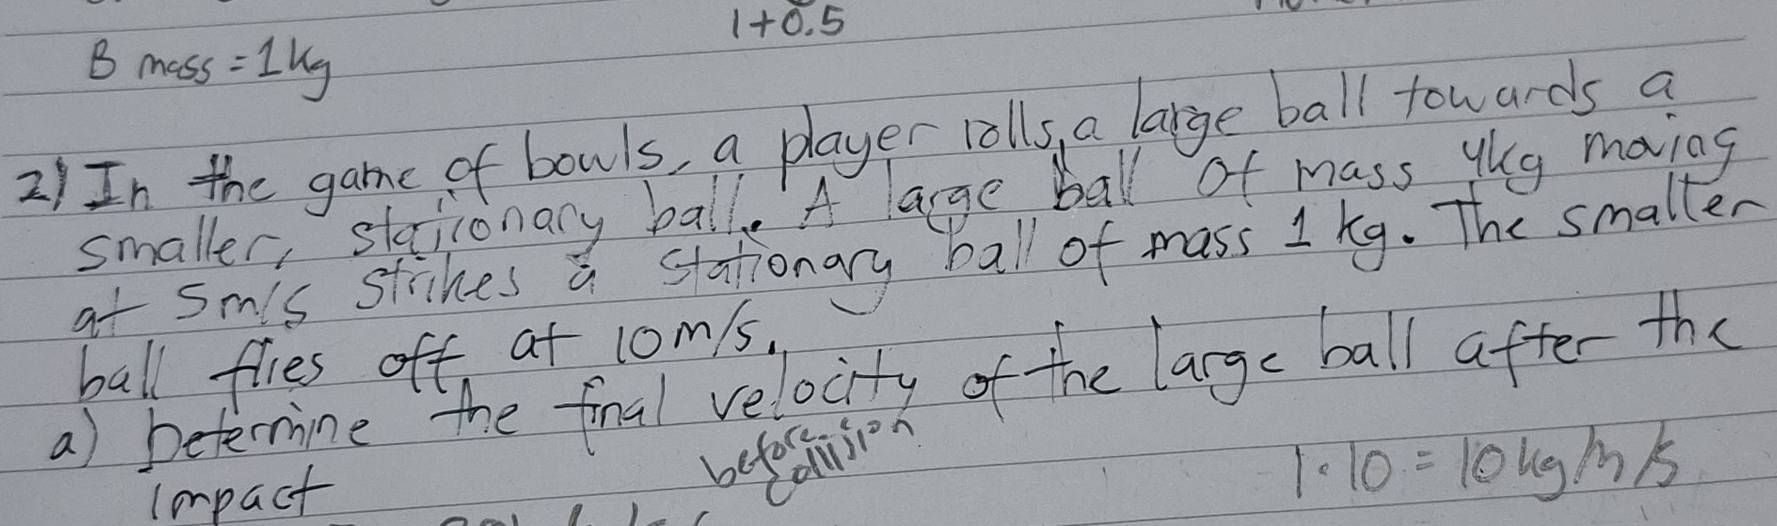 1+0.5
B mass = 1kg
2) In the game of bowls, a player rolls a large ball towards a
smaller, stationary ball. A large ball of mass 4kg moving
at 5m/s strikes a stationary ball of mass 1 kg. The smaller
ball flies off at 10m/s.
a) Determine the final velocity of the large ball after the
impact
before collision
1·10 = 10kg m/s